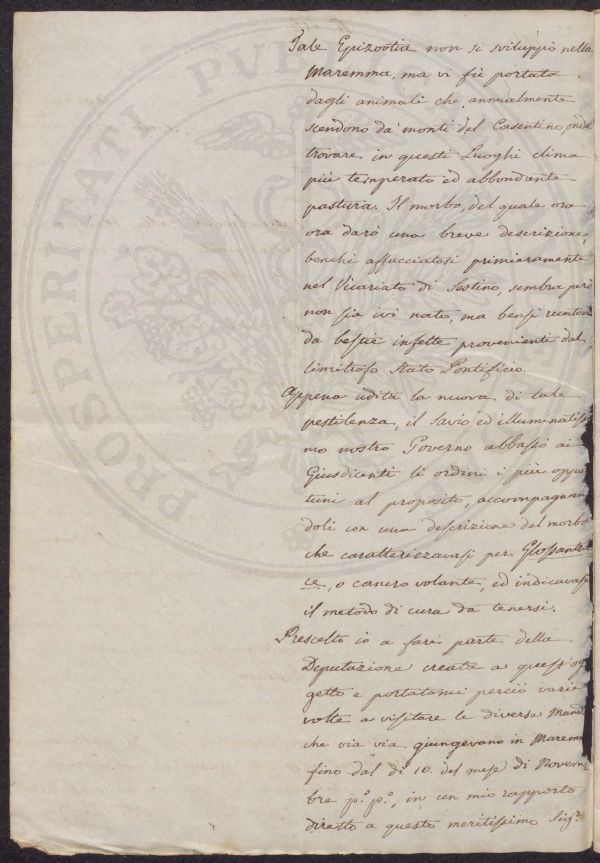 Tale Epizootia non si sviluppò nella
Maremma, ma vi fù portata
dagli animali che annualmente
scendono da' monti del Casentino, onde
trovare in questi Luoghi clima
più temperato ed abbondante
pastura. Il morbo, del quale ora
ora darò una breve descrizione,
benchè affacciatosi primieramente
nel Vicariato di Sestino, sembra però
non sia ivi nato, ma bensì recatovi
da bestie infette proveniente dal
limitrofo Stato Pontificio.
Appena udita la nuova di tale
pestilenza, il Savio ed illuminatissi
mo nostro Governo abbassò ai
Giusdicenti li ordini i più oppor
tuni al proposito, accompagnan
doli con una descrizione del morbo
che caratterizzavasi per Glossantra
ce, o cancro volante, ed indicavasi
il metodo di cura da tenersi.
Prescelto io a fari parte della
Deputazione creata a quest'og
getto e portatomi perciò varie
volte a visitare le diverse Mand
che via via giungevano in Maremm
fino dal dì 10. del mese di Novem
bre p.º p.º, in un mio rapporto
diretto a questo meritissimo Sig.r
PROSPERITATI PVBLICAE